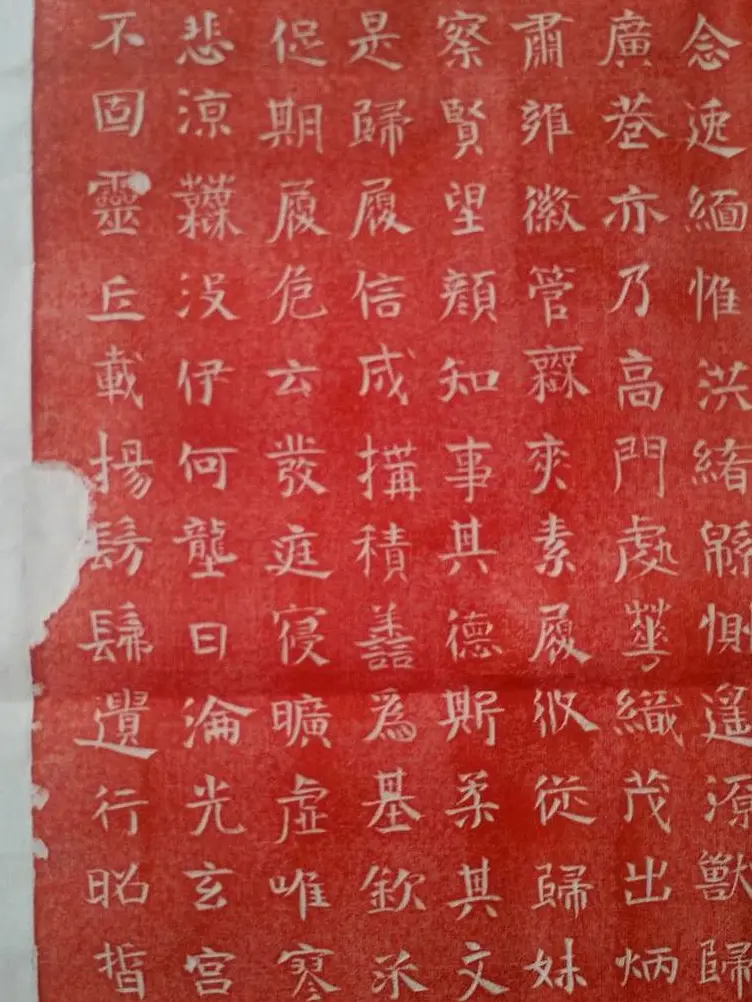 念逸緬惟洪緒緜惻遥源獸歸
廣巷亦乃高門處華織茂出炳
肅雍徽管夾素履攸從歸妹
察賢望顏知事其德斯柔其文
是歸履信成搆積善為基欽承
促期履危云發庭寑曠虛唯寒
悲涼沒伊何壟日淪光玄宮
不固靈丘載揚髣髴遺行昭晢